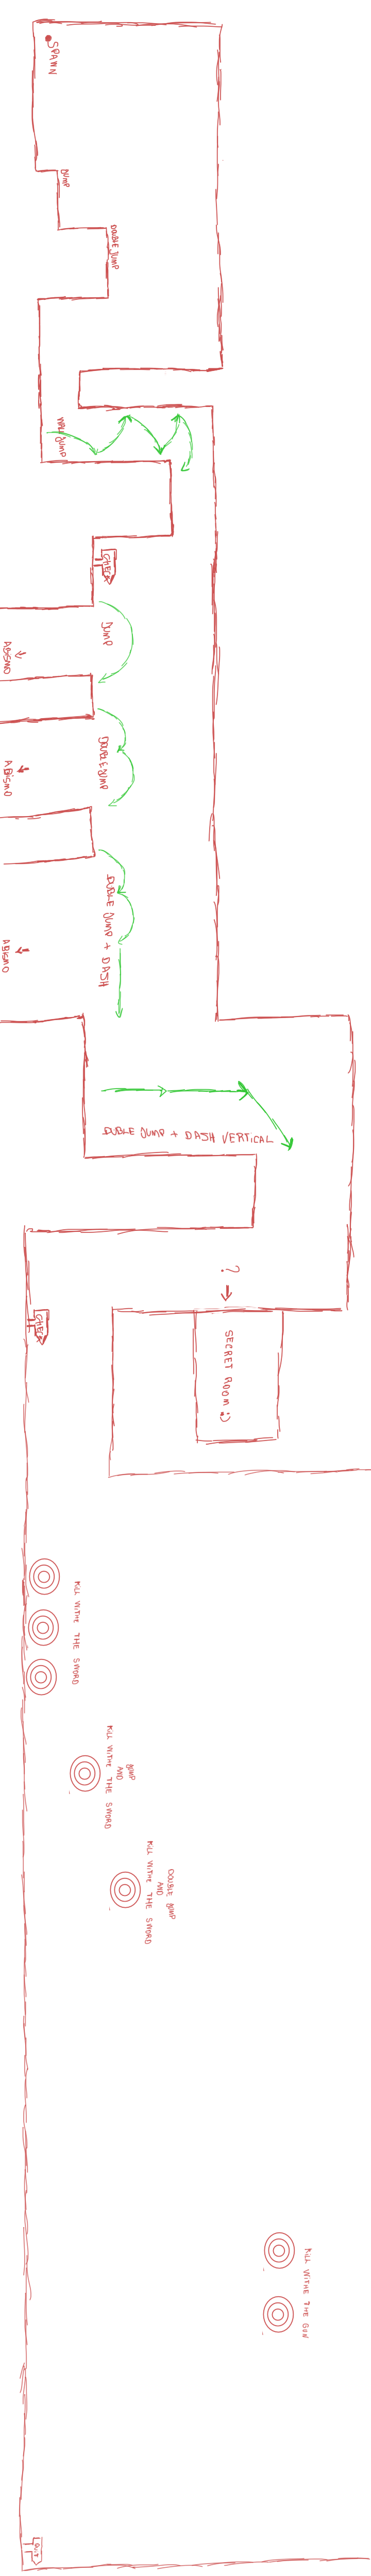 SPAWN
JUMP
DOUBLE JUMP
WALL JUMP
CHECK
JUMP
ABISMO
DOUBLE JUMP
ABISMO
DUBLE JUMP + DASH
ABISMO
DUBLE JUMP + DASH VERTICAL
?
SECRET ROOM :)
CHECK
KILL WITHE THE SWORD
JUMP
AND
KILL WITHE THE SWORD
DOUBLE JUMP
AND
KILL WITHE THE SWORD
KILL WITHE THE GUN
OUT